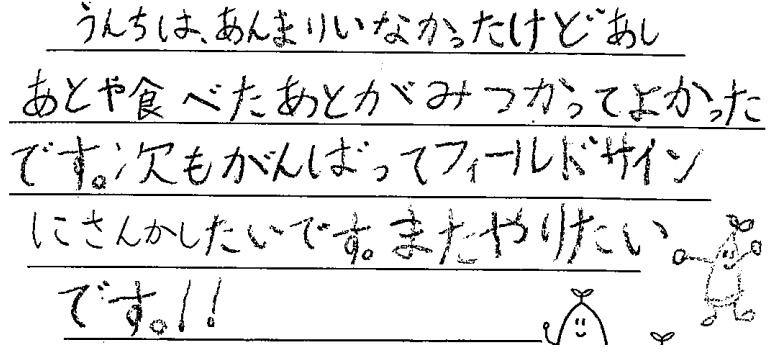 うんちは、あんまりいなかったけどあし
あとや食べたあとがみつかってよかった
です。次もがんばってフィールドサイン
にさんかしたいです。またやりたい
です。!!